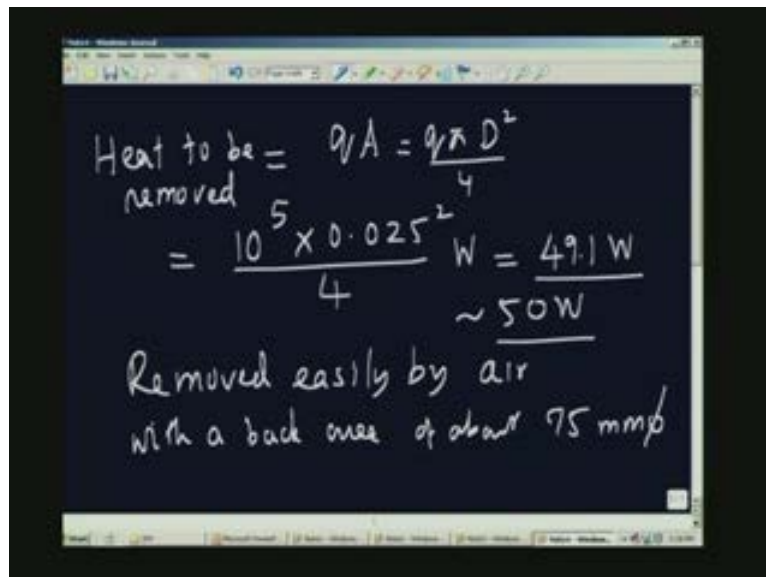 Heat to be = qA = qπD²/4
removed
= 10⁵ × 0.025²/4 W = 49.1 W
~ 50W
Removed easily by air
with a back area of about 75 mmφ